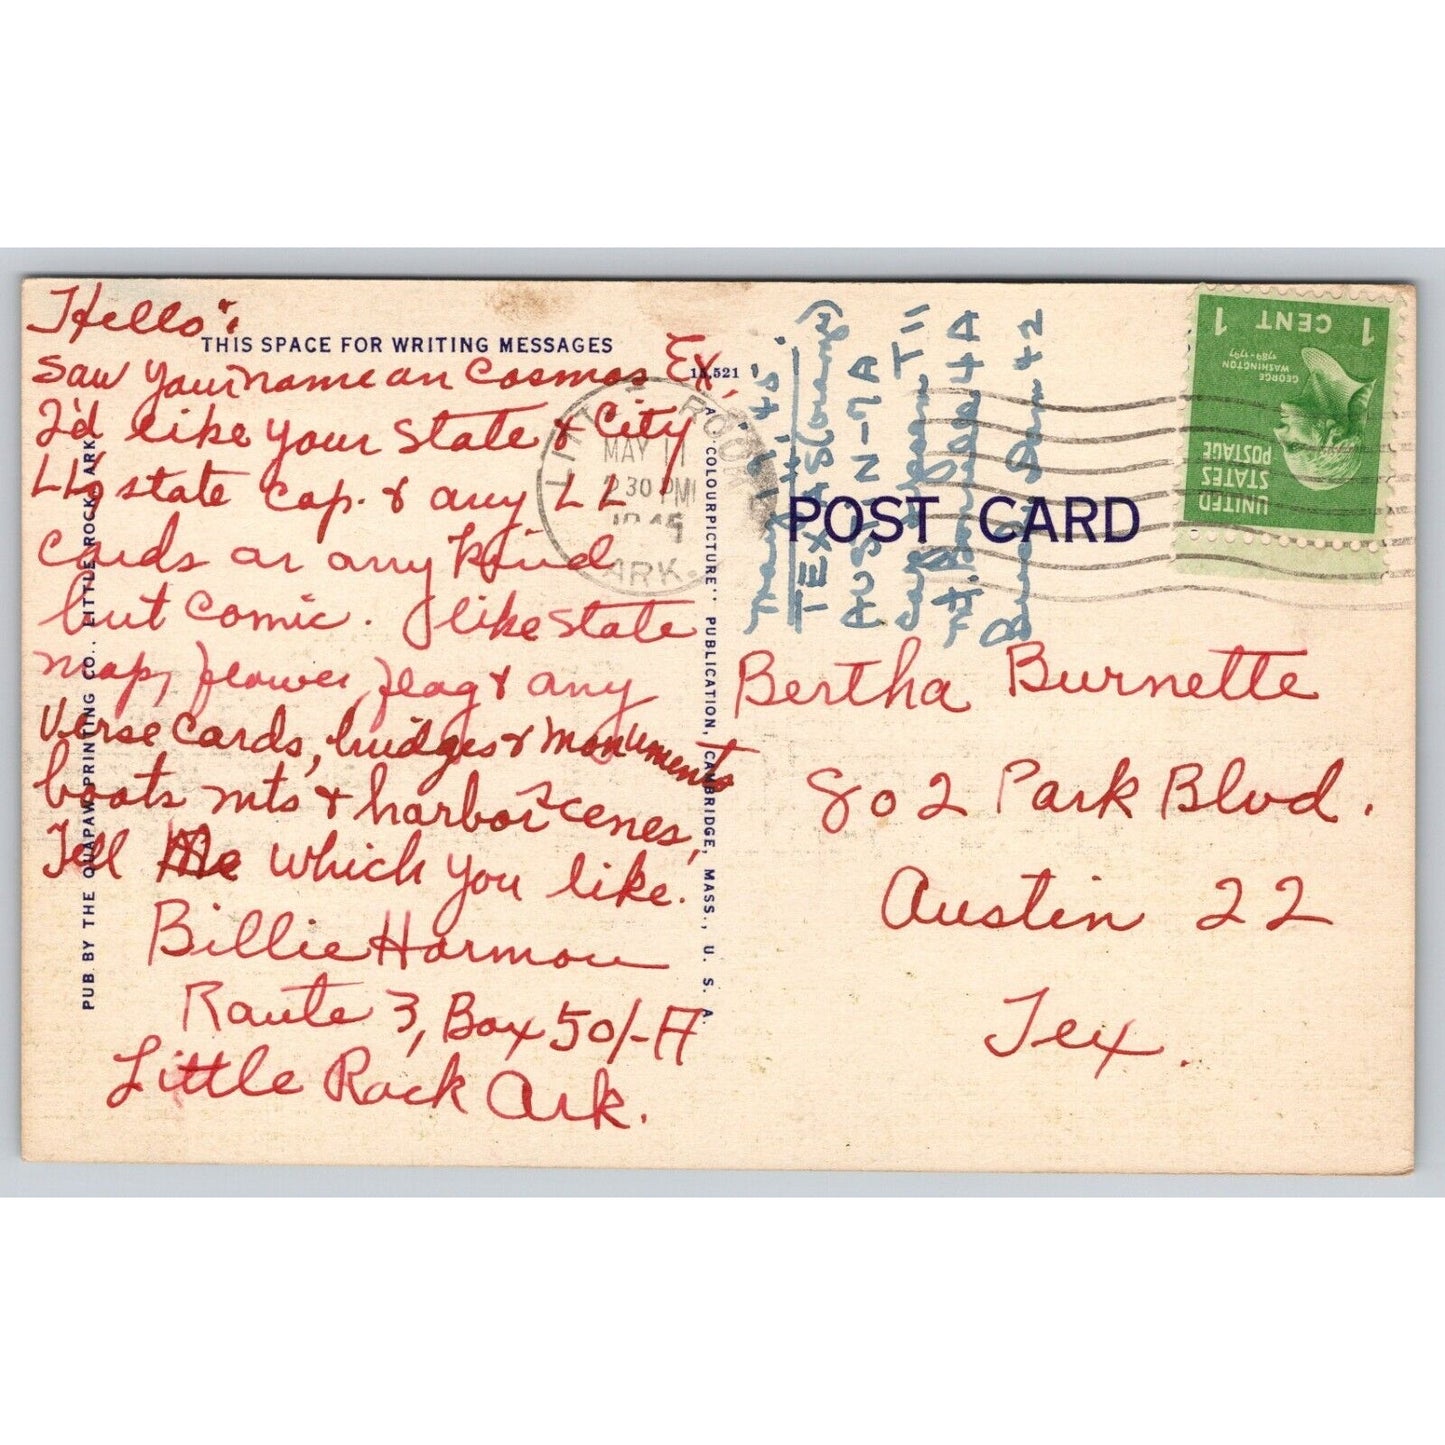 Hello:
THIS SPACE FOR WRITING MESSAGES
saw your name on Cosmos Ex,
I'd like your State & City
LL's state Cap. & any LL
cards or any kind
but comic. I like State
map, flower, flag & any
Verse cards, bridges & monuments
boats, mts & harbor scenes,
Tell Me which you like.
Billie Harmon
Route 3, Box 501-A
Little Rock Ark.
PUB BY THE QUAPAW PRINTING CO., LITTLE ROCK, ARK.
1A521
A "COLOURPICTURE" PUBLICATION, CAMBRIDGE, MASS., U. S. A.
LITTLE ROCK
MAY 11
2 30 PM
1945
ARK.
May 19, 45.
TEXAS (Large)
AUSTIN-7A
T11
4A
42
POST CARD
UNITED
STATES
POSTAGE
GEORGE
WASHINGTON
1789-1797
1 CENT 1
Bertha Burnette
802 Park Blvd.
Austin 22
Tex.